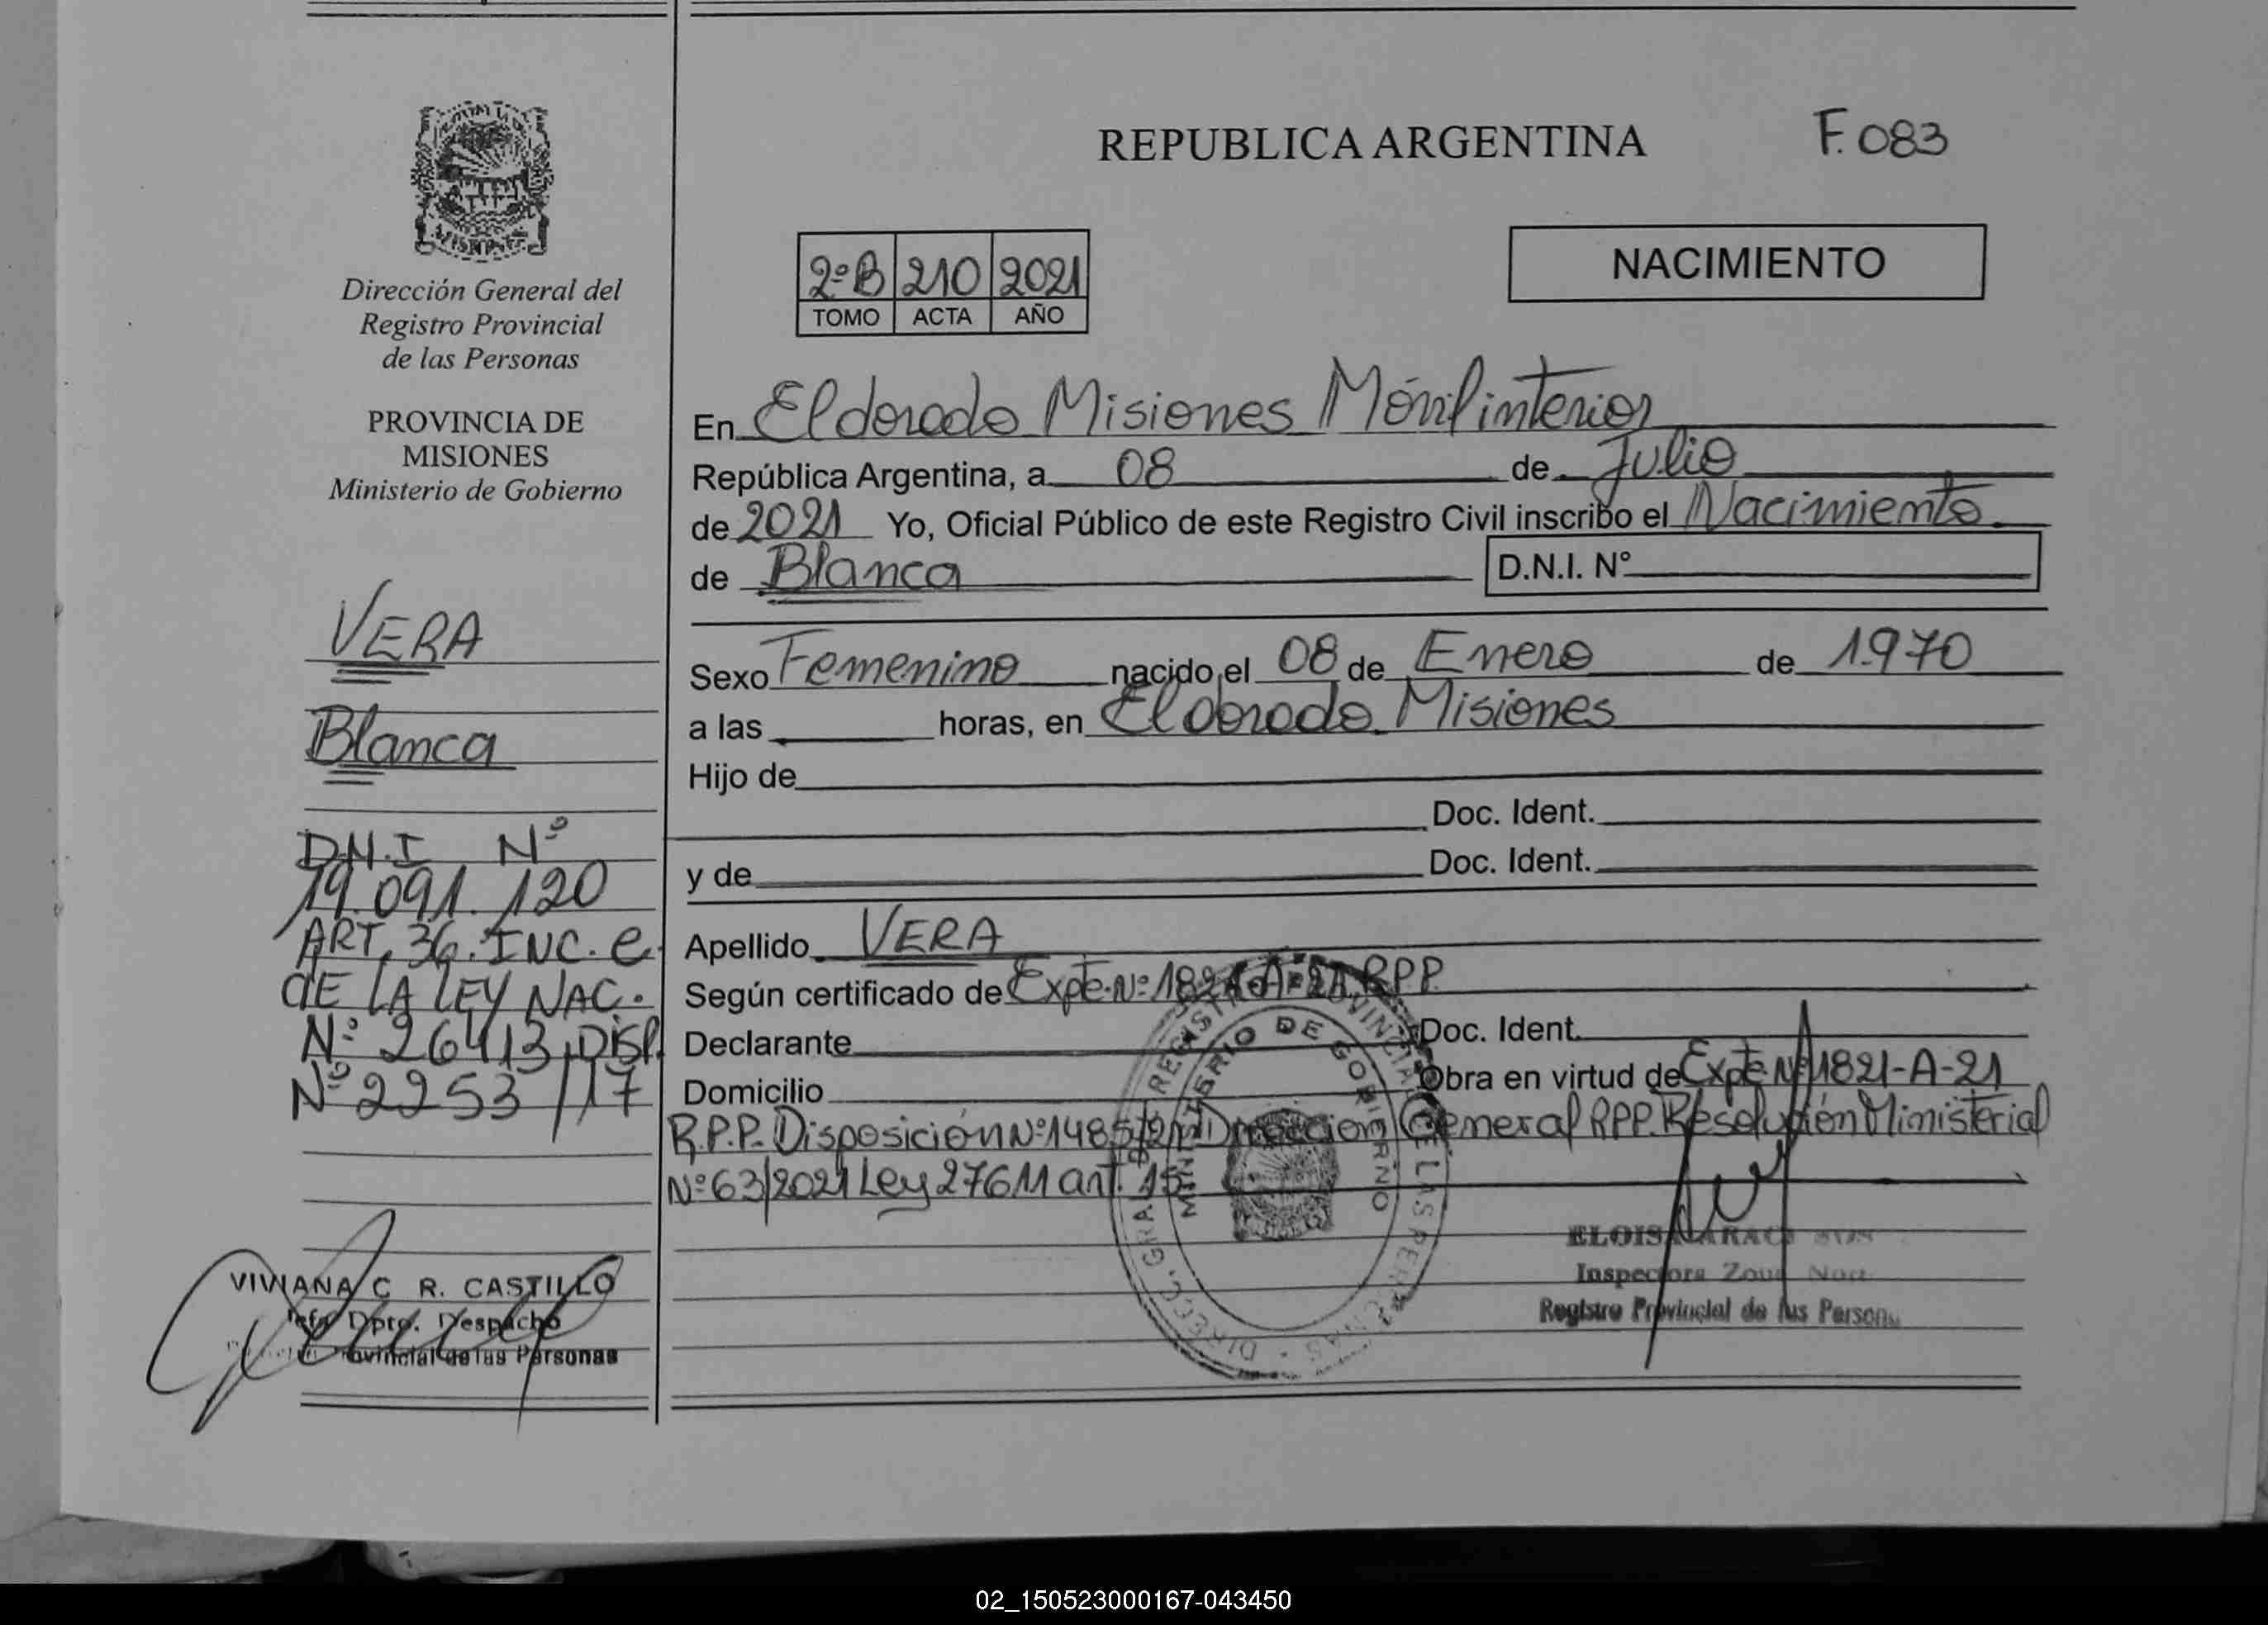 REPUBLICA ARGENTINA F. 083
Dirección General del
Registro Provincial
de las Personas
PROVINCIA DE
MISIONES
Ministerio de Gobierno
VERA
Blanca
D.N.I Nº
19.091.120
ART. 36. INC. e
dE LA LEY NAC.
Nº 26413, DISP.
Nº 2253/17
VIVIANA C R. CASTILLO
Jefa Dpto. Despacho
Provincial de las Personas
2ºB 210 2021
TOMO ACTA AÑO
NACIMIENTO
En Eldorado Misiones Móvil interior
República Argentina, a 08 de Julio
de 2021 Yo, Oficial Público de este Registro Civil inscribo el Nacimiento
de Blanca D.N.I. Nº
Sexo Femenino nacido el 08 de Enero de 1970
a las horas, en Eldorado Misiones
Hijo de
Doc. Ident.
y de Doc. Ident.
Apellido VERA
Según certificado de Expte Nº 1821-A-21 RPP.
Declarante Doc. Ident.
Domicilio Obra en virtud de Expte Nº 1821-A-21
R.P.P. Disposición Nº 1485/21 Dirección General RPP. Resolución Ministerial
Nº 63/2021 Ley 27611 art. 15
MINISTERIO DE GOBIERNO
Inspectora Zona
Registro Provincial de las Persona
02_150523000167-043450